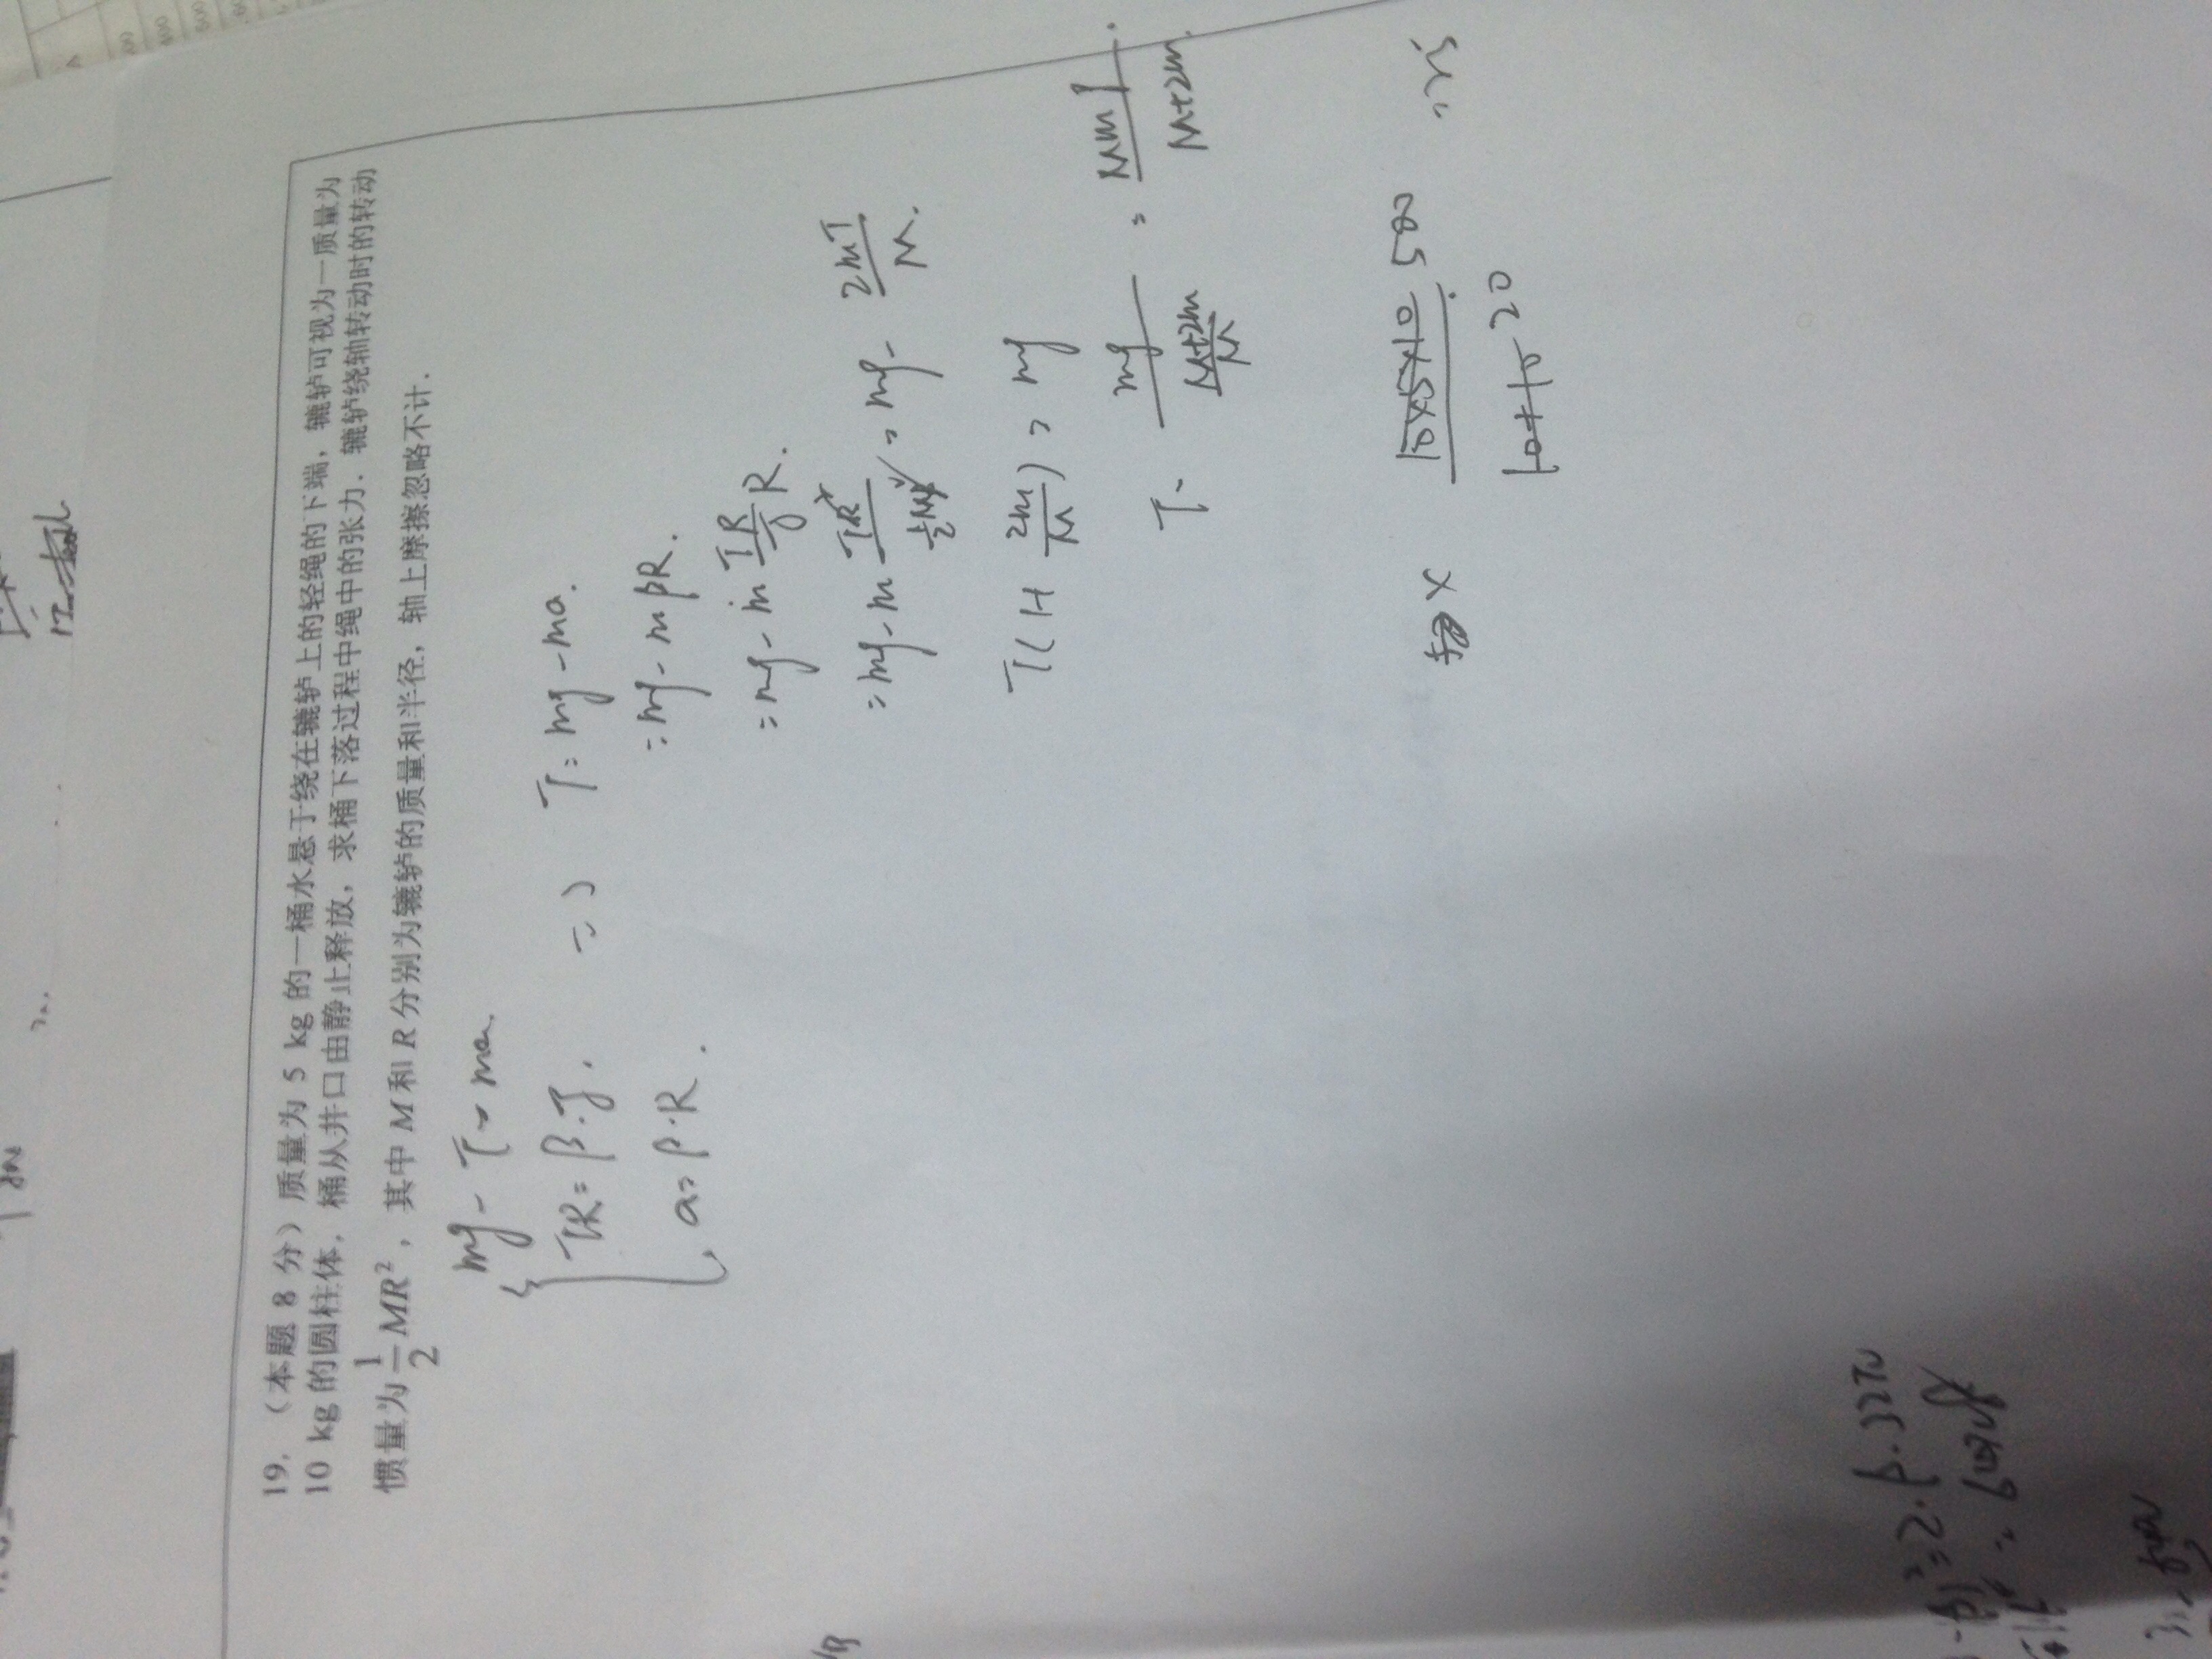 19. （本题 8 分）质量为 5 kg 的一桶水悬于绕在辘轳上的轻绳的下端，辘轳可视为一质量为
10 kg 的圆柱体．桶从井口由静止释放，求桶下落过程中绳中的张力．辘轳绕轴转动时的转动
惯量为 1/2 MR²，其中 M 和 R 分别为辘轳的质量和半径，轴上摩擦忽略不计．
mg - T = ma.
TR = β·J.
a = β·R.
=> T = mg - ma.
= mg - mβR.
= mg - m TR/J R.
= mg - m TR²/(1/2 MR²) = mg - 2mT/M.
T(1+ 2m/M) = mg
T = mg/((M+2m)/M) = Mmg/(M+2m).
× 10×5×10 500 = 25
10+10 20
² = 2·β·32π